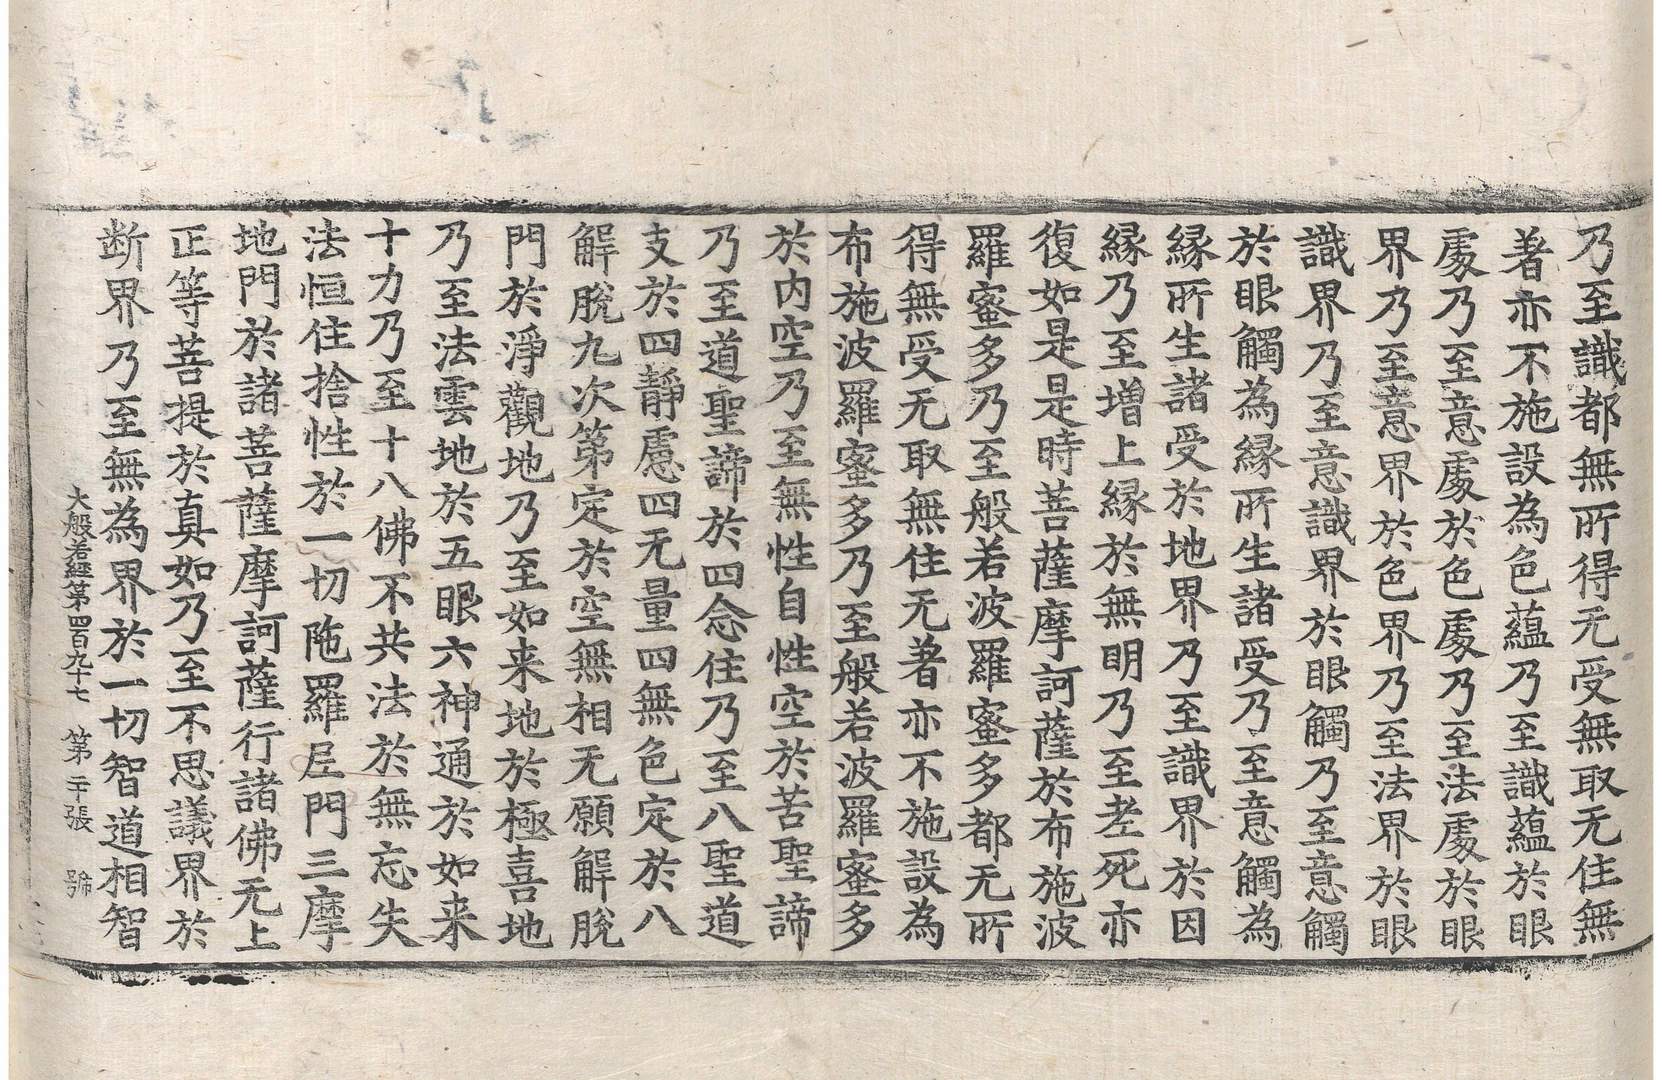 乃至識都無所得无受無取无住無
著亦不施設為色蘊乃至識蘊於眼
處乃至意處於色處乃至法處於眼
界乃至意界於色界乃至法界於眼
識界乃至意識界於眼觸乃至意觸
於眼觸為縁所生諸受乃至意觸為
縁所生諸受於地界乃至識界於因
縁乃至増上縁於無明乃至老死亦
復如是是時菩薩摩訶薩於布施波
羅蜜多乃至般若波羅蜜多都无所
得無受无取無住无著亦不施設為
布施波羅蜜多乃至般若波羅蜜多
於内空乃至無性自性空於苦聖諦
乃至道聖諦於四念住乃至八聖道
支於四靜慮四无量四無色定於八
解脫九次第定於空無相无願解脫
門於淨觀地乃至如来地於極喜地
乃至法雲地於五眼六神通於如来
十力乃至十八佛不共法於無忘失
法恒住捨性於一切陁羅尼門三摩
地門於諸菩薩摩訶薩行諸佛无上
正等菩提於真如乃至不思議界於
断界乃至無為界於一切智道相智
大般若經第四百九十七 第二十張 號